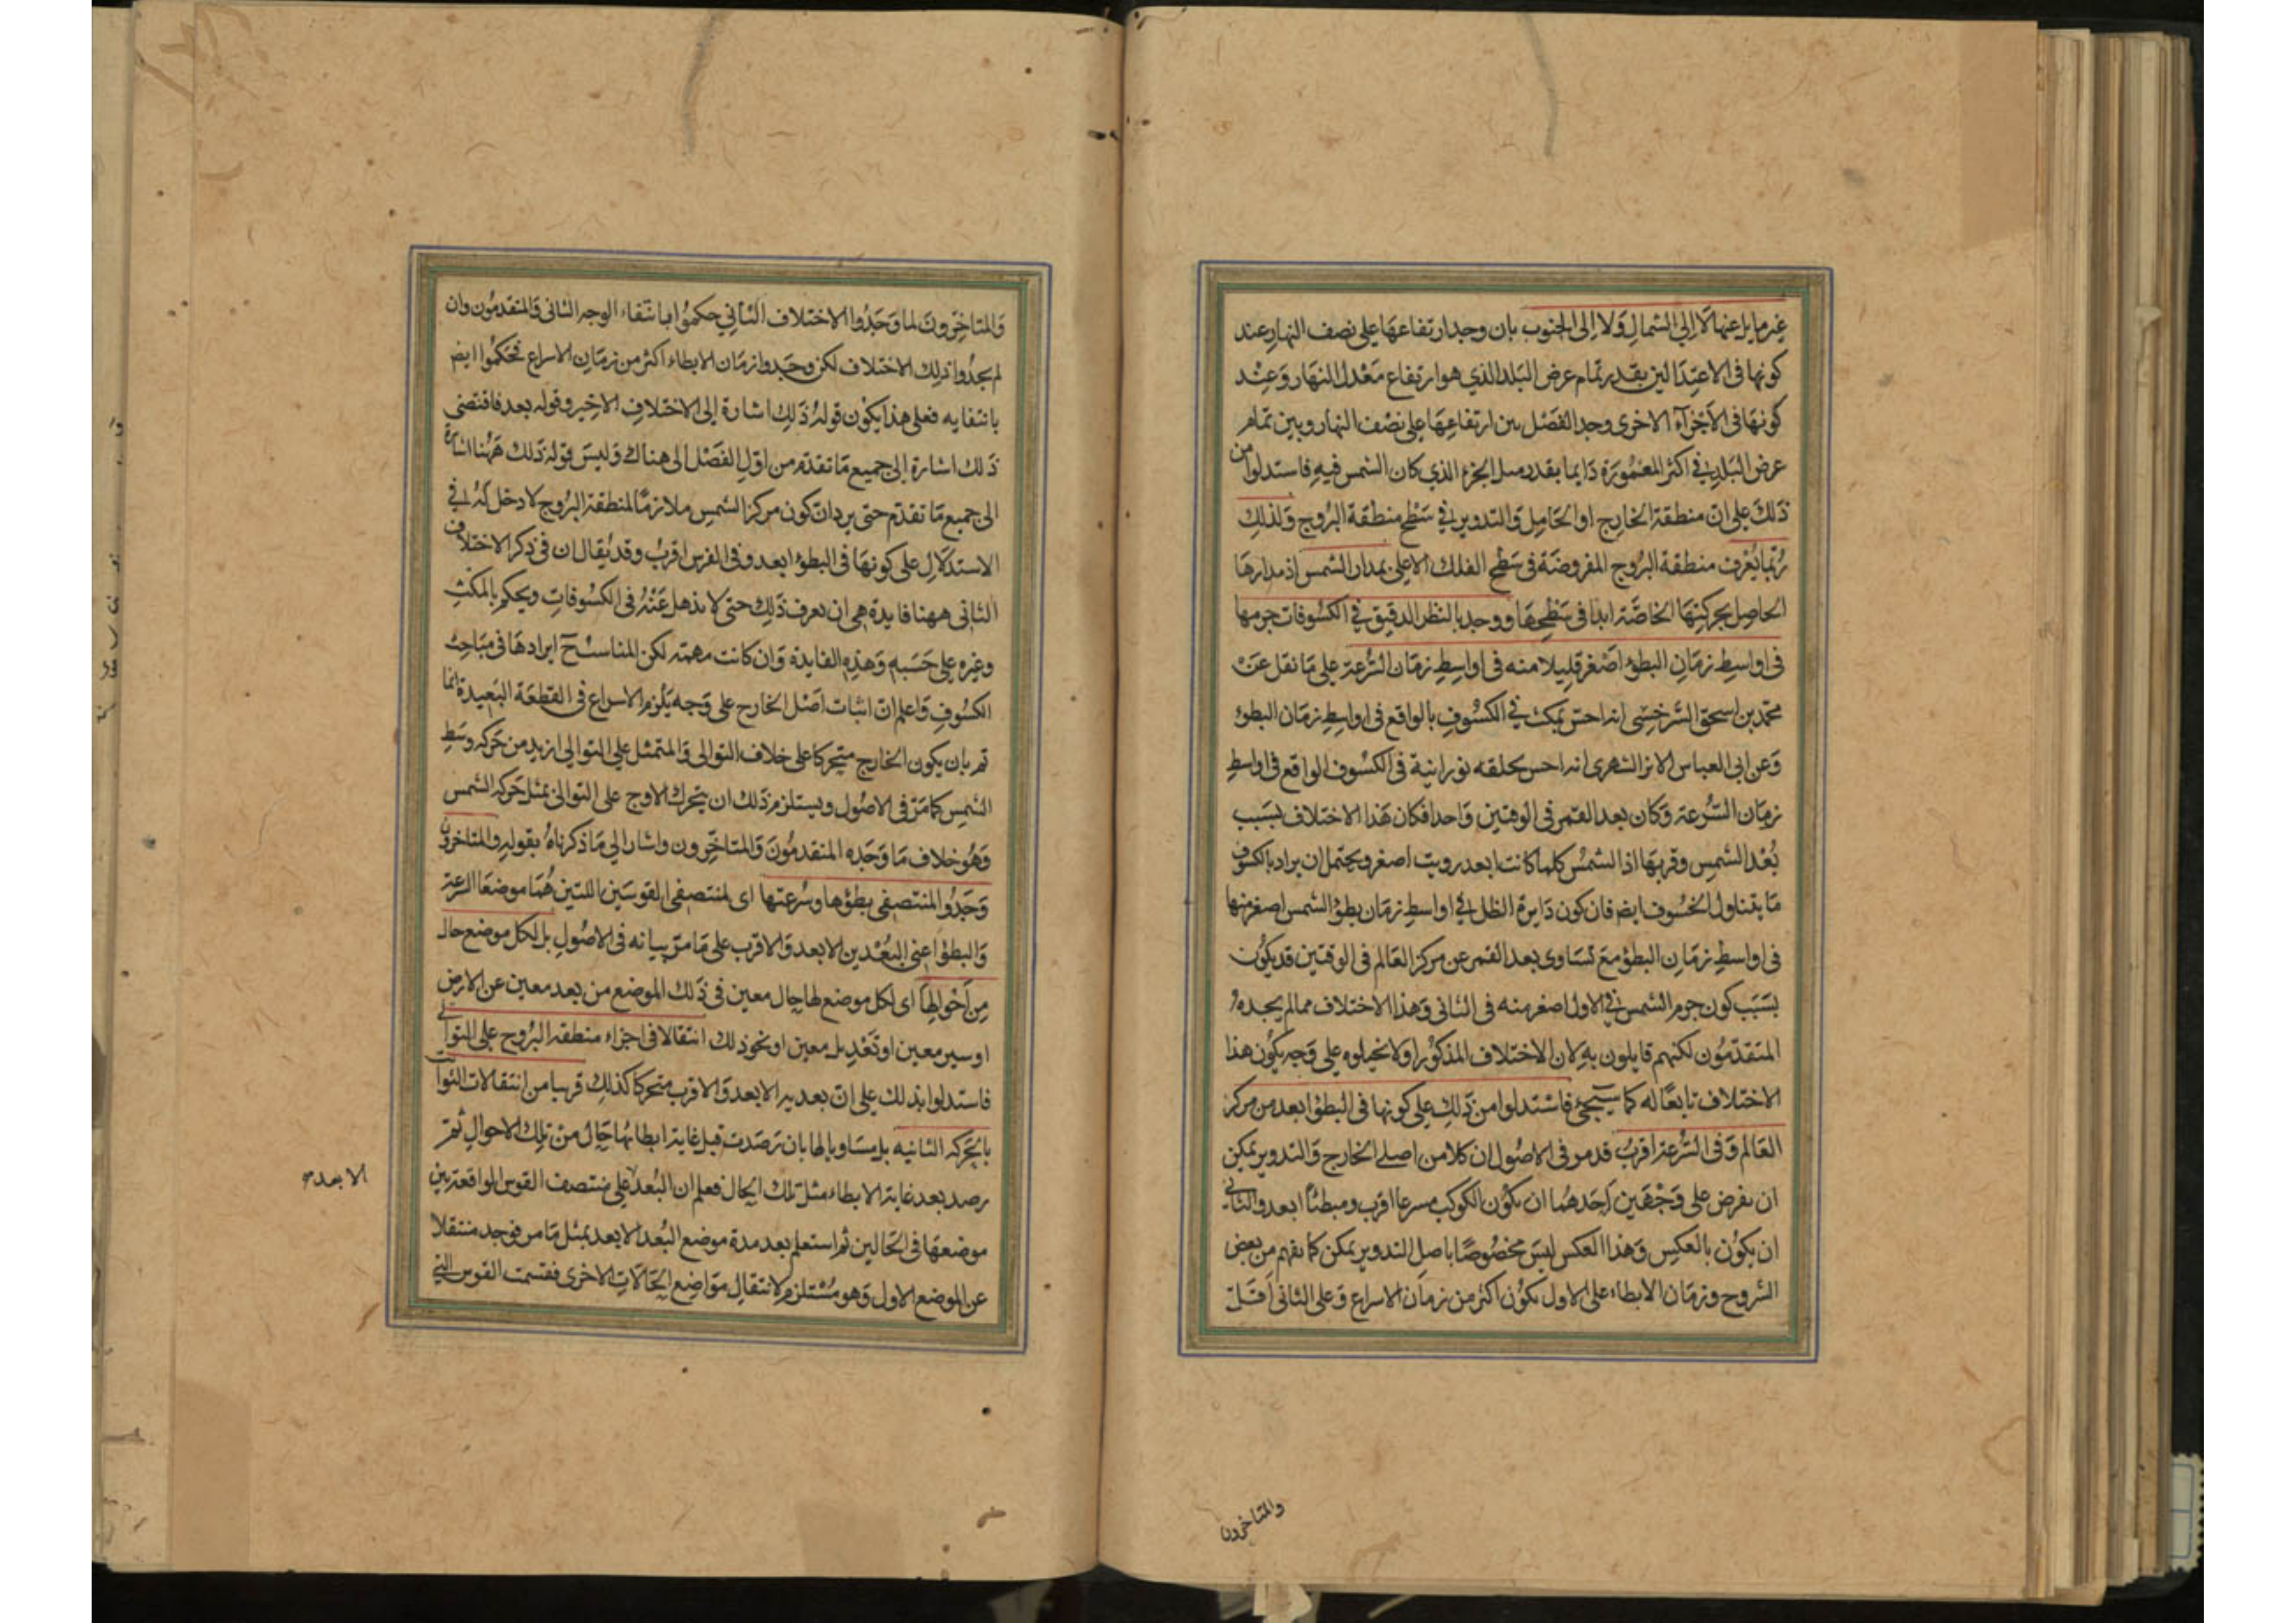 غير مايل عنها لا الى الشمال ولا الى الجنوب بان وجد ارتفاعها على نصف النهار عند
كونها في الاعتدالين بقدر تمام عرض البلد الذي هو ارتفاع معدل النهار وعند
كونها في الاجزاء الاخرى وجد الفضل بين ارتفاعها على نصف النهار وبين تمام
عرض البلد في اكثر المعمورة دايما بقدر ميل الجزء الذي كان الشمس فيه فاستدلوا من
ذلك على ان منطقة الخارج او الحامل والتدوير في سطح منطقة البروج ولذلك
ربما يعرف منطقة البروج المفروضة في سطح الفلك الاعلى بمدار الشمس اذ مدارها
الحاصل بحركتها الخاصة ابدا في سطحها ووجد بالنظر الدقيق في الكسوفات جرمها
في اواسط زمان البطؤ اصغر قليلا منه في اواسط زمان السرعة على ما نقل عن
محمد بن اسحق السرخسي انه احس بمكث في الكسوف بالواقع في اواسط زمان البطؤ
وعن ابي العباس الايرانشهري انه احس بحلقه نورانية في الكسوف الواقع في اواسط
زمان السرعة وكان بعد القمر في الوقتين واحدا فكان هذا الاختلاف بسبب
بعد الشمس وقربها اذ الشمس كلما كانت ابعد رويت اصغر ويحتمل ان يراد بالكسوف
ما يتناول الخسوف ايض فان كون دايرة الظل في اواسط زمان بطؤ الشمس اصغر منها
في اواسط زمان البطؤ مع تساوي بعد القمر عن مركز العالم في الوقتين قد يكون
بسبب كون جرم الشمس في الاول اصغر منه في الثاني وهذا الاختلاف مما لم يجده
المتقدمون لكنهم قايلون به لان الاختلاف المذكور اولا تخيلوه على وجه يكون هذا
الاختلاف تابعا له كما سيجئ فاستدلوا من ذلك على كونها في البطؤ ابعد من مركز
العالم وفي السرعة اقرب قد مر في الاصول ان كلا من اصلي الخارج والتدوير يمكن
ان يفرض على وجهين احدهما ان يكون الكوكب مسرعا اقرب ومبطئا ابعد والثاني
ان يكون بالعكس وهذا العكس ليس مخصوصا باصل التدوير يمكن كما يفهم من بعض
الشروح وزمان الابطاء على الاول يكون اكثر من زمان الاسراع وعلى الثاني اقل
والمتاخرون
والمتاخرون لما وجدوا الاختلاف الثاني حكموا بانتفاء الوجه الثاني والمتقدمون وان
لم يجدوا ذلك الاختلاف لكن وجدوا زمان الابطاء اكثر من زمان الاسراع فحكموا ايض
بانتفايه فعلى هذا يكون قوله ذلك اشارة الى الاختلاف الاخير وقوله بعد فاقتضى
ذلك اشارة الى جميع ما تقدم من اول الفصل الى هناك وليس قوله ذلك ههنا اشارة
الى جميع ما تقدم حتى يرد ان كون مركز الشمس ملازما لمنطقة البروج لا دخل له في
الاستدلال على كونها في البطؤ ابعد وفي الفرس اقرب وقد يقال ان في ذكر الاختلاف
الثاني ههنا فايدة هي ان يعرف ذلك حتى لا يذهل عنه في الكسوفات ويحكم بالمكث
وغيره على حسبه وهذه الفايدة وان كانت مهمة لكن المناسب ح ايرادها في مباحث
الكسوف واعلم ان اثبات اصل الخارج على وجه يلزم الاسراع في القطعة البعيدة انما
تم بان يكون الخارج متحركا على خلاف التوالي والمتمثل على التوالي ازيد من حركة وسط
الشمس كما مر في الاصول ويستلزم ذلك ان يتحرك الاوج على التوالي بمثل حركة الشمس
وهو خلاف ما وجده المتقدمون والمتاخرون واشار الى ما ذكرناه بقوله والمتاخرون
وجدوا لمنتصفي بطؤها وسرعتها اي لمنتصفي القوسين اللتين هما موضعا السرعة
والبطؤ اعني البعدين الابعد والاقرب على ما مر بيانه في الاصول بل لكل موضع حال
من احوالها اي لكل موضع لها حال معين في ذلك الموضع من بعد معين عن الارض
او سير معين او تعديل معين او نحو ذلك انتقالا في اجزاء منطقة البروج على التوالي
فاستدلوا بذلك على ان بعديه الابعد والاقرب متحركا كذلك قريبا من انتقالات الثوابت
بالحركة الثانيه بل مساويا لها بان ترصدت قبل غاية ابطائها حال من تلك الاحوال ثم
رصد بعد غاية الابطاء مثل تلك الحال فعلم ان البعد على منتصف القوس الواقعة بين
الابعد
موضعها في الحالين ثم استعلم بعد مدة موضع البعد الابعد بمثل ما مر فوجد منتقلا
عن الموضع الاول وهو مستلزم لانتقال مواضع الحالات الاخرى فقسمت القوس التي